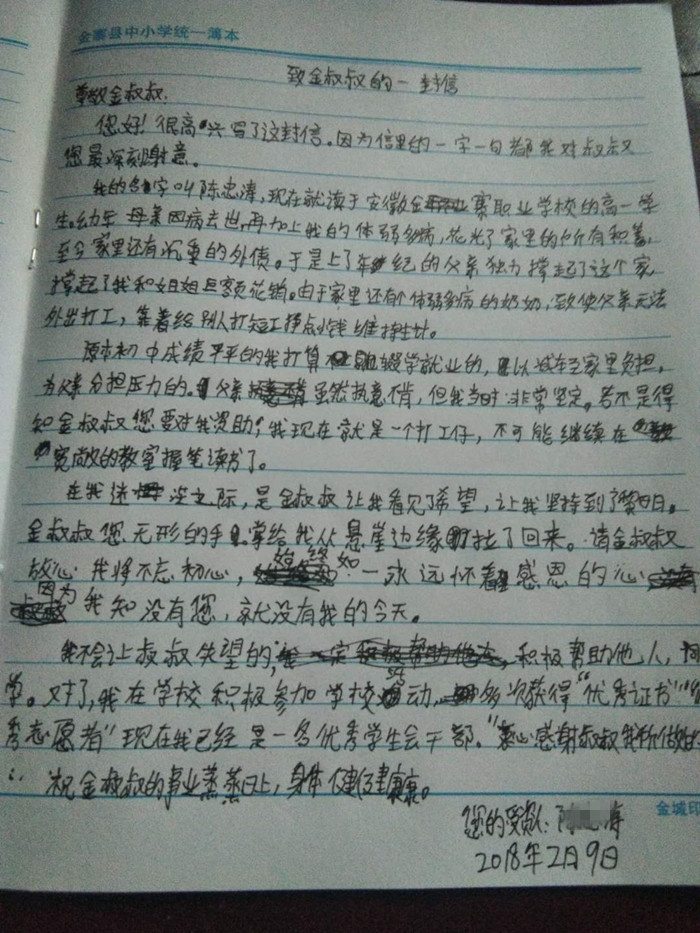 金寨县中小学统一薄本
致金叔叔的一封信
尊敬金叔叔:
您好!很高兴写了这封信。因为信里的一字一句都我对叔叔
您最深刻谢意。
我的名字叫陈忠涛,现在就读于安徽金寨职业学校的高一学
生。幼年母亲因病去世,再加上我的体弱多病,花光了家里的所有积蓄,
至今家里还有沉重的外债。于是上了年纪的父亲独力撑起了这个家,
撑起了我和姐姐巨额花销。由于家里还有个体弱多病的奶奶,致使父亲无法
外出打工,靠着给别人打短工挣点小钱维持生计。
原本初中成绩平平的我打算辍学就业的,以减轻家里负担,
为父亲分担压力的。父亲虽然执意不肯,但我当时非常坚定。若不是得
知金叔叔您要对我资助,我现在就是一个打工仔,不可能继续在
宽敞的教室握笔读书了。
在我迷没之际,是金叔叔让我看见了希望,让我坚持到了今日。
金叔叔您无形的手掌给我从悬崖边缘拉了回来。请金叔叔
放心我将不忘初心,始终如一永远怀着感恩的心
因为我知没有您,就没有我的今天。
我不会让叔叔失望的,积极帮助他人,同
学。对了,我在学校积极参加学校活动,多次获得“优秀证书”“优
秀志愿者”现在我已经是一名优秀学生会干部。衷心感谢叔叔我所做的
祝金叔叔的事业蒸蒸日上,身体健健康康。
您的受资人:陈 涛
2018年2月9日
金城印